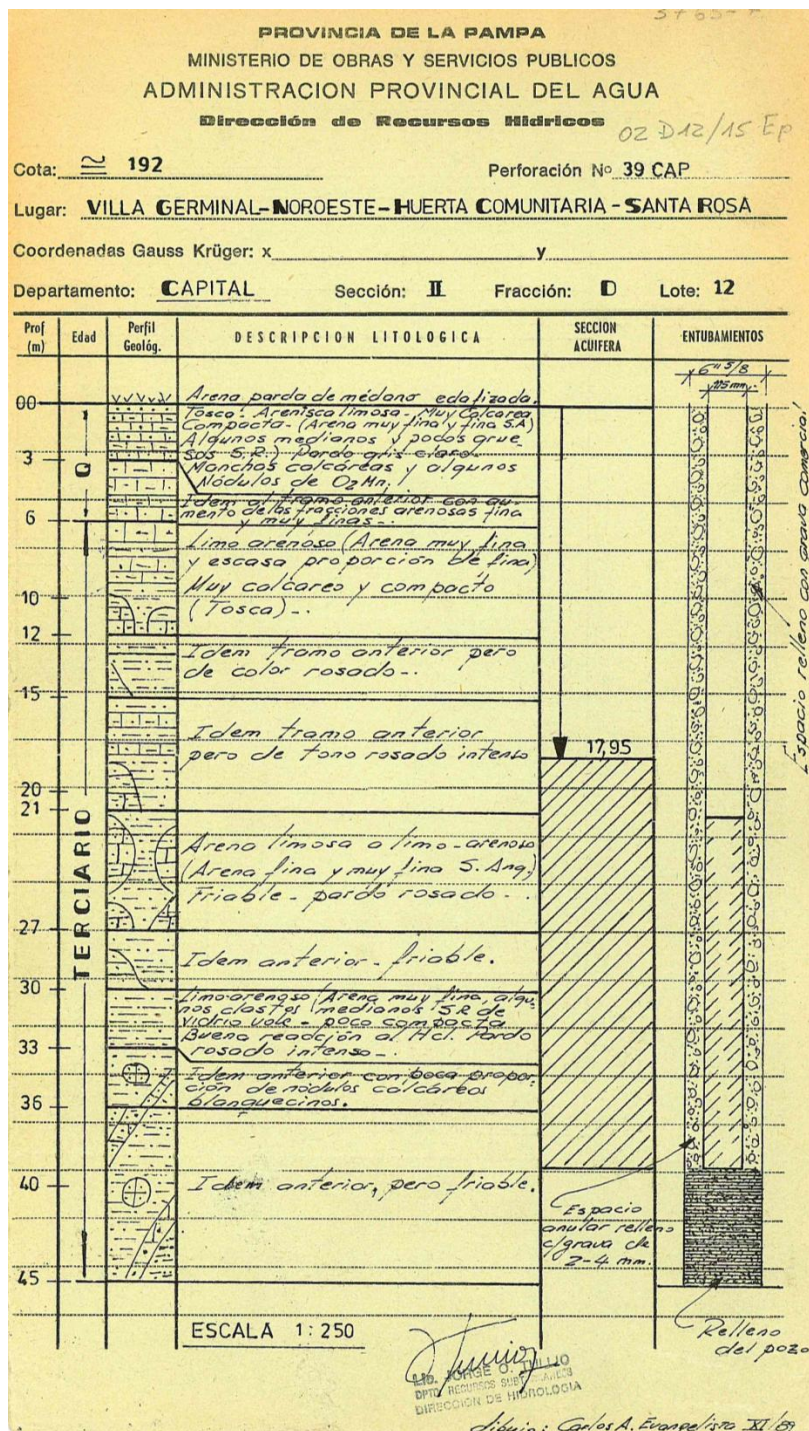 PROVINCIA DE LA PAMPA
MINISTERIO DE OBRAS Y SERVICIOS PUBLICOS
ADMINISTRACION PROVINCIAL DEL AGUA
Dirección de Recursos Hídricos
02 D12/15 Ep
Cota: ≅ 192 Perforación Nº 39 CAP
Lugar: VILLA GERMINAL-NOROESTE-HUERTA COMUNITARIA - SANTA ROSA
Coordenadas Gauss Krüger: x y
Departamento: CAPITAL Sección: II Fracción: D Lote: 12
Prof (m) Edad Perfil Geológ. DESCRIPCION LITOLOGICA SECCION ACUIFERA ENTUBAMIENTOS
6" 5/8
115mm
00 Arena parda de médano edafizada.
Tosca- Arenisca limosa- Muy Calcarea
Compacta- (Arena muy fina y fina S.A)
Algunos medianos y pocos grue
sos S.R.) Pardo gris claro-
3 Manchas calcáreas y algunos
Nódulos de O2Mn.
Q
Idem al tramo anterior con au-
mento de las fracciones arenosas fina
y muy finas-.
6
Limo arenoso (Arena muy fina
y escasa proporción de fina)
Muy calcáreo y compacto
(Tosca)-.
10
12
Idem tramo anterior pero
de color rosado-.
15
Idem tramo anterior
pero de tono rosado intenso
17,95
20
21
TERCIARIO
Arena limosa a limo-arenoso
(Arena fina y muy fina S. Ang.)
Friable- pardo rosado-.
27
Idem anterior- friable.
30
Limo arenoso (Arena muy fina, algu-
nos clastos medianos SR de
vidrio volc- poco compacta
Buena reacción al Hcl. Pardo
rosado intenso-.
33
Idem anterior con poca propor-
ción de nódulos calcáreos
blanquecinos.
36
40 Idem anterior, pero friable.
45
Espacio relleno con grava comercial
Espacio
anular relleno
c/grava de
2-4 mm.
Relleno
del pozo
ESCALA 1:250
LIC. JORGE O. TULLIO
DPTO RECURSOS SUBTERRANEOS
DIRECCION DE HIDROLOGIA
dibujo: Carlos A. Evangelista XI/89